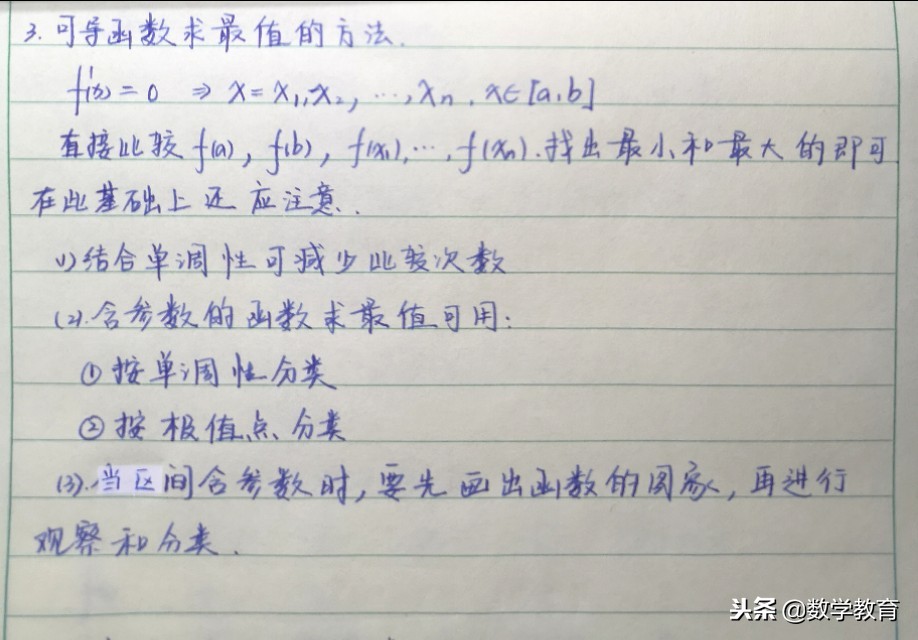 3. 可导函数求最值的方法.
f'(x)=0 ⇒ x=x₁,x₂,…,xₙ. x∈[a,b]
直接比较f(a), f(b), f(x₁),…,f(xₙ).找出最小和最大的即可
在此基础上还应注意.
(1)结合单调性可减少比较次数
(2).含参数的函数求最值可用:
①按单调性分类
②按极值点分类
(3).当区间含参数时,要先画出函数的图象,再进行
观察和分类.
头条 @数学教育